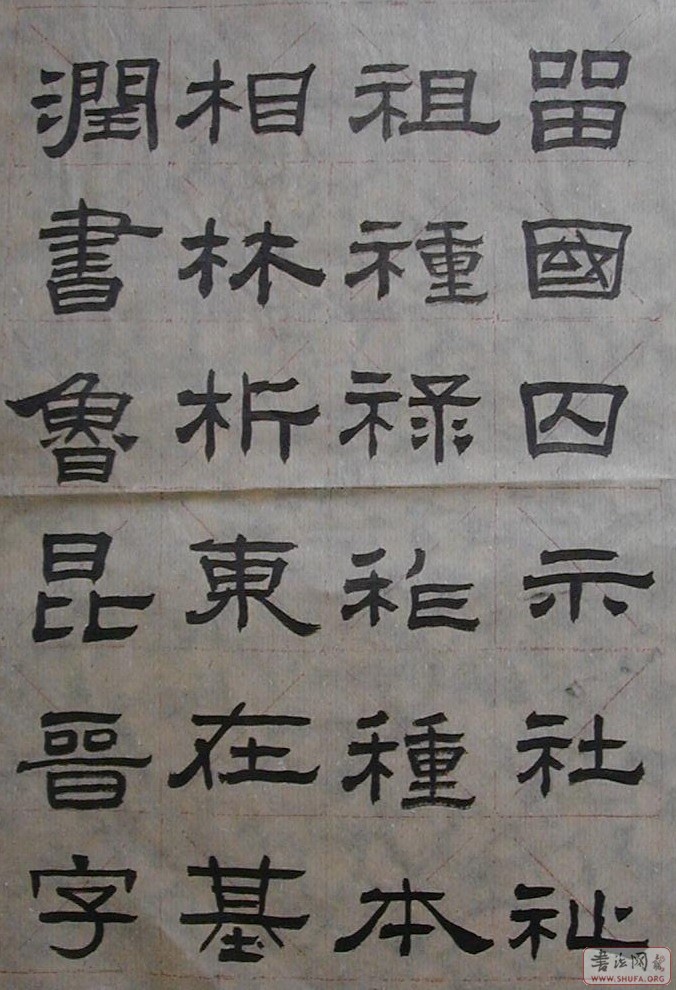 㽞國囚示社祉
祖種禄祚種本
相林析東在基
潤書魯昆晉字
书法网
WWW.SHUFA.ORG